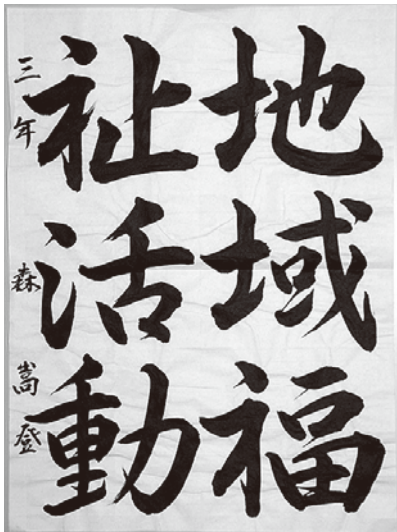 地域福
祉活動
三年 森嵩登